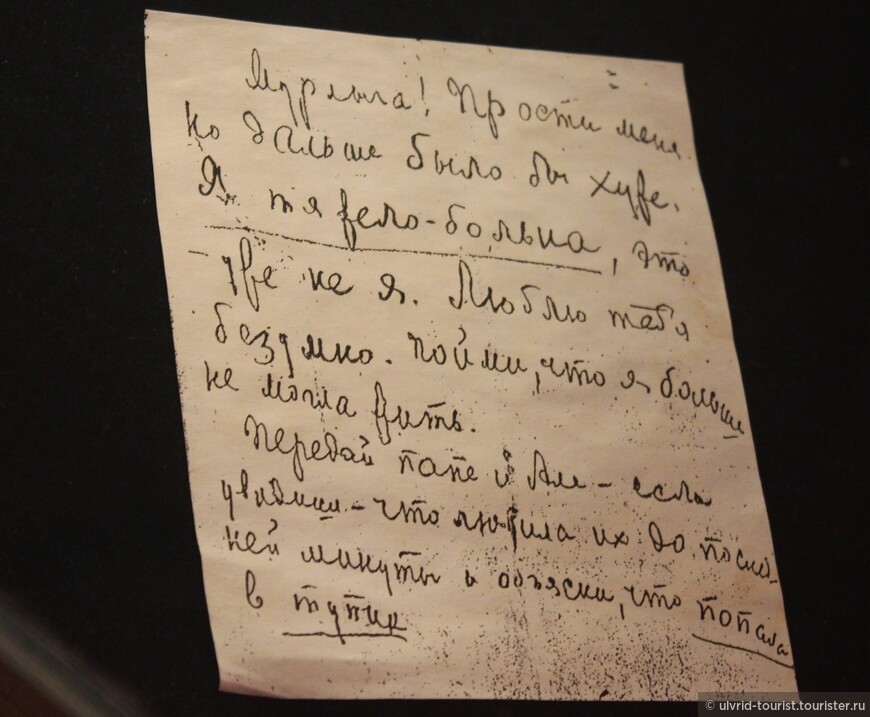 Мурлыга! Прости меня
но дальше было бы хуже.
Я тяжело-больна, это
уже не я. Люблю тебя
безумно. Пойми, что я больше
не могла жить.
Передай папе и Але – если
увидишь – что любила их до послед-
ней минуты и объясни, что попала
в тупик
© ulvrid-tourist.tourister.ru